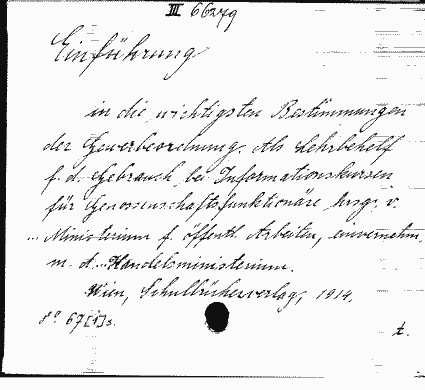 III 66279
Einführung
in die wichtigsten Bestimmungen
der Gewerbeordnung. Als Lehrbehelf
f. d. Gebrauch bei Informationskursen
für Genossenschaftsfunktionäre hrsg. v.
... Ministerium f. öffentl. Arbeiten, einvernehm.
m. d. ... Handelsministerium.
Wien, Schulbücherverlag, 1914.
8° 67 [1] s.
t.